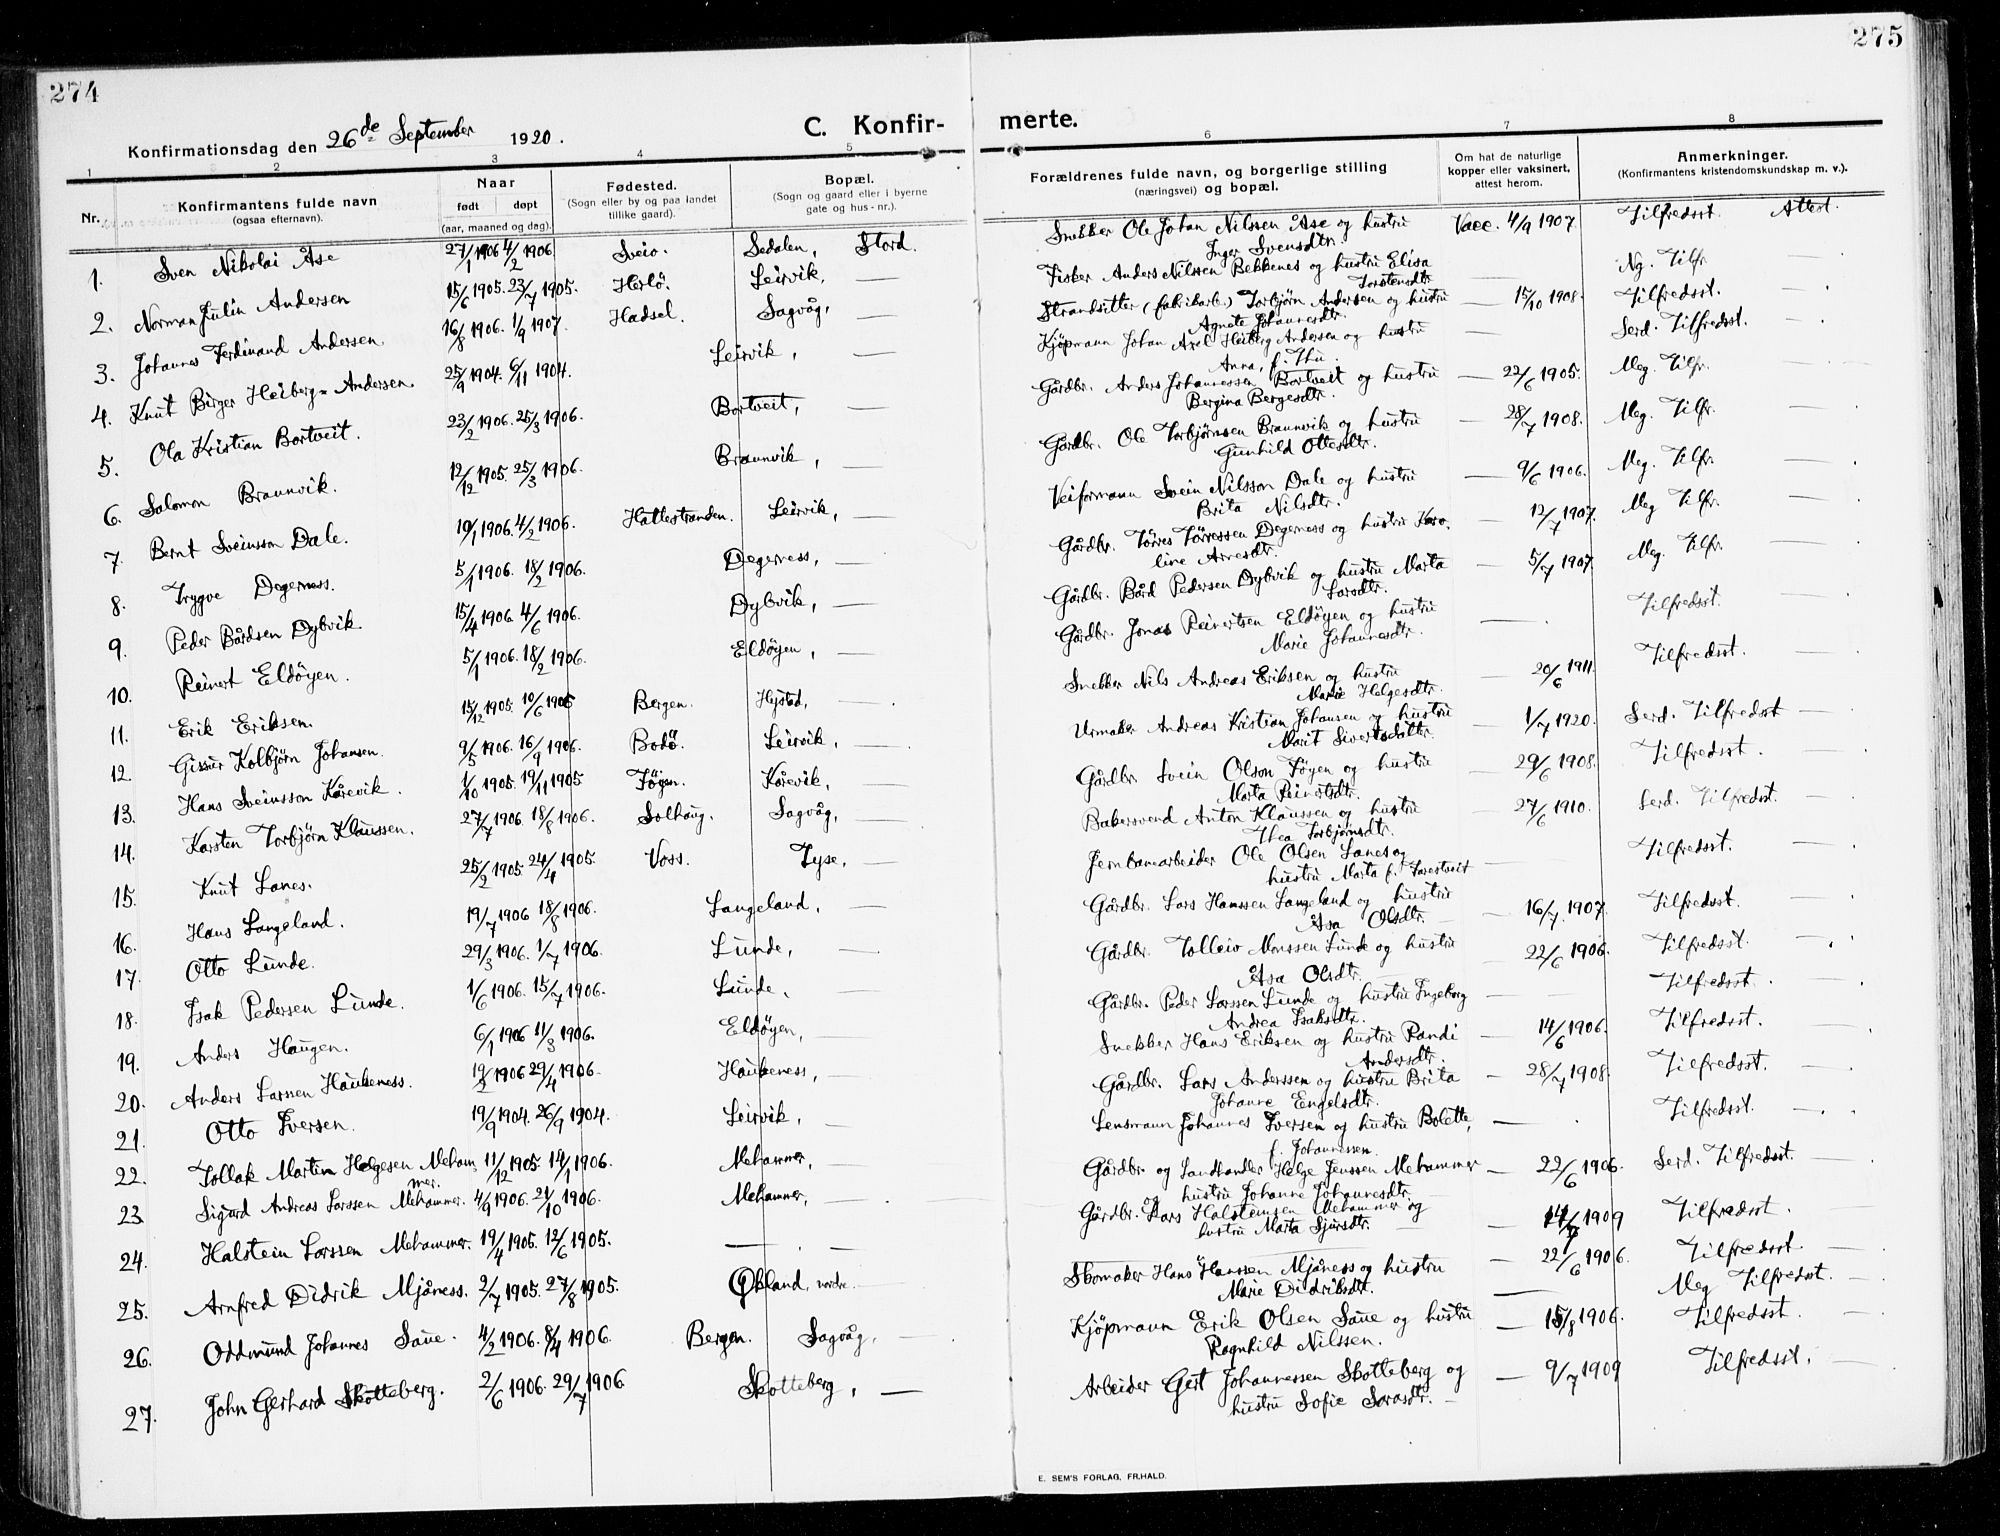 274
275
Konfirmationsdag den 26de September 1920.
C. Konfir-
merte.
1 2 3 4 5 6 7 8
Nr.
Konfirmantens fulde navn
(ogsaa efternavn).
Naar
født døpt
(aar, maaned og dag).
Fødested.
(Sogn eller by og paa landet
tillike gaard).
Bopæl.
(Sogn og gaard eller i byerne
gate og hus-nr.).
Forældrenes fulde navn, og borgerlige stilling
(næringsvei) og bopæl.
Om hat de naturlige
kopper eller vaksinert,
attest herom.
Anmerkninger.
(Konfirmantens kristendomskundskap m. v.).
1. Sven Nikolai Åse 27/1 1906 4/2 1906 Sveio. Sedalen, Stord. Snekker Ole Johan Nilssen Åse og hustru Vacc. 4/9 1907. Tilfredsst. Attest.
Inger Svensdtr.
2. Norman Julin Andersen 15/6 1905. 23/7 1905. Herlö. Leirvik, — Fisker Anders Nilssen Bekkenes og hustru Elisa — Ng. Tilfr — .
Torstensdtr.
3. Johannes Ferdinand Andersen. 16/8 1906. 1/9 1907. Hadsel. Sagvåg, — Strandsitter (fabrikarb.) Torbjørn Andersen og hustru — 15/10 1908. Tilfredsst. — .
Agnete Johannesdtr.
4. Knut Birger Heiberg-Andersen. 25/9 1904. 6/11 1904. Leirvik, — Kjöpmann Johan Axel Heiberg Andersen og hustru — Serd. Tilfredsst. — .
Anna, f. Thu.
5. Ola Kristian Bortveit. 23/2 1906. 25/3 1906. Bortveit, — Gårdbr. Anders Johannessen Bortveit og hustru — 22/6 1905. Meg. Tilfr. — .
Bergina Bergesdtr.
6. Salomon Braunvik. 12/12 1905. 25/3 1906. Braunvik, — Gårdbr. Ole Torbjørnsen Braunvik og hustru — 28/7 1908. Meg. Tilfr. — .
Gunhild Ottesdtr.
7. Bernt Sveinsson Dale. 19/1 1906. 4/2 1906. Hattestranden. Leirvik, — Veiformann Svein Nilsson Dale og hustru — 9/6 1906. Meg. Tilfr. — .
Brita Nilsdtr.
8. Trygve Degerness. 5/1 1906. 18/2 1906. Degerness, — Gårdbr. Törres Törressen Degerness og hustru Karo- — 12/7 1907. Meg Tilfr. — .
line Arnesdtr.
9. Peder Bårdsen Dybvik 15/4 1906. 4/6 1906. Dybvik, — Gårdbr. Bård Pedersen Dybvik og hustru Marta — 5/7 1907. Meg. Tilfr. — .
Larsdtr.
10. Reinert Eldöyen. 5/1 1906. 18/2 1906. Eldöyen, — Gårdbr. Jonas Reinertsen Eldöyen og hustru — . Tilfredsst. — .
Marie Johannesdtr.
11. Erik Eriksen. 15/12 1905. 10/6 1906 Bergen. Hystad, — Snekker Nils Andreas Eriksen og hustru — 20/6 1911. Tilfredsst. — .
Marie Helgesdtr.
12. Gissur Kolbjörn Johansen. 9/5 1906. 16/9 1906. Bodö. Leirvik, — . Urmaker Andreas Kristian Johansen og hustru — 1/7 1920. Serd. Tilfredsst — .
Marit Sivertsdtr.
13. Hans Sveinsson Kårevik. 1/10 1905. 19/11 1905 Föyen. Kårevik, — Gårdbr. Svein Olson Föyen og hustru — 29/6 1908. Tilfredsst. — .
Marta Reinertsdtr.
14. Karsten Torbjörn Klaussen. 27/7 1906. 18/8 1906. Solhaug. Sagvåg, — Bakersvend Anton Klaussen og hustru — 27/6 1910. Serd. Tilfredsst. — .
Thea Torbjørnsdtr.
15. Knut Lanes. 25/2 1905 24/4 1905. Voss. Tyse, — Jernbanearbeider Ole Olsen Lanes og — Tilfredsst. — .
hustru Marta f.
16. Hans Langeland. 19/7 1906 18/8 1906. Langeland, — Gårdbr. Lars Hanssen Langeland og hustru — 16/7 1907. Tilfredsst. — .
Åsa Olsdtr.
17. Otto Lunde. 29/3 1906. 1/7 1906. Lunde, — Gårdbr. Tolleiv Monssen Lunde og hustru — 22/6 1906. Tilfredsst. — .
Åsa Olsdtr.
18. Isak Pedersen Lunde. 1/6 1906. 15/7 1906. Lunde. — Gårdbr. Peder Larssen Lunde og hustru Ingeborg — Tilfredsst. — .
Andrea Isaksdtr.
19. Anders Haugen. 6/1 1906 11/3 1906. Eldöyen, — Snekker Hans Eriksen og hustru Randi — 14/6 1906. Tilfredsst. — .
Andersdtr.
20. Anders Larssen Haukeness. 19/2 1906 29/4 1906. Haukeness, — Gårdbr. Lars Anderssen og hustru Brita — 28/7 1908. Tilfredsst. — .
Johanne Engelsdtr.
21. Otto Iversen. 19/9 1904. 26/9 1904. Leirvik, — Lensmann Johannes Iversen og hustru Bolette, — . Tilfredsst. — .
f. Johannessen.
22. Tollak Martin Helgesen Meham- 11/12 1905. 14/1 1906. Mehammer, — Gårdbr. og Landhandler Helge Jenssen Mehammer — 22/6 1906. Serd. Tilfredsst. — .
mer. og hustru Johanne Johannesdtr.
23. Sigurd Andreas Larssen Mehammer. 4/9 1906. 21/10 1906. Mehammer, — Gårdbr. Lars Halsteinsen Mehammer og — 14/7 1909 Tilfredsst. —
hustru Marta Sjursdtr.
24. Halstein Larssen Mehammer. 19/4 1905. 12/6 1905. — . — — — 22/6 1906. Tilfredsst. —
25. Arnfred Didrik Mjåness. 2/7 1905. 27/8 1905. Økland, nordre. — Skomaker Hans Hanssen Mjåness og hustru — Meg Tilfredsst. —
Marie Didriksdtr.
26. Oddmund Johannes Saue. 4/2 1906. 8/4 1906. Bergen. Sagvåg, — Kjöpmann Erik Olsen Saue og hustru — 15/8 1906. Tilfredsst. —
Ragnhild Nilssen.
27. John Gerhard Skotteberg. 2/6 1906. 29/7 1906 Skotteberg, — Arbeider Gert Johannessen Skotteberg og — 9/7 1909 Tilfredsst. —
hustru Sofie
E. SEM'S FORLAG, FR.HALD.